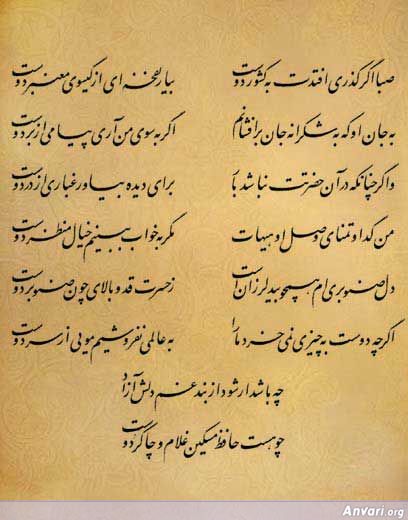 صبا اگر گذری افتدت به کشور دوست بیار نفحه ای از گیسوی معنبر دوست
به جان او که به شکرانه جان برافشانم اگر به سوی من آری پیامی از بر دوست
و گر چنانکه در آن حضرتت نباشد بار برای دیده بیاور غباری از در دوست
من گدا و تمنای وصل او هیهات مگر به خواب ببینم خیال منظر دوست
دل صنوبری ام همچو بید لرزان است ز حسرت قد و بالای چون صنوبر دوست
اگر چه دوست به چیزی نمی خرد ما را به عالمی نفروشیم مویی از سر دوست
چه باشد ار شود از بند غم دلش آزاد
چو هست حافظ مسکین غلام و چاکر دوست
Anvari.org